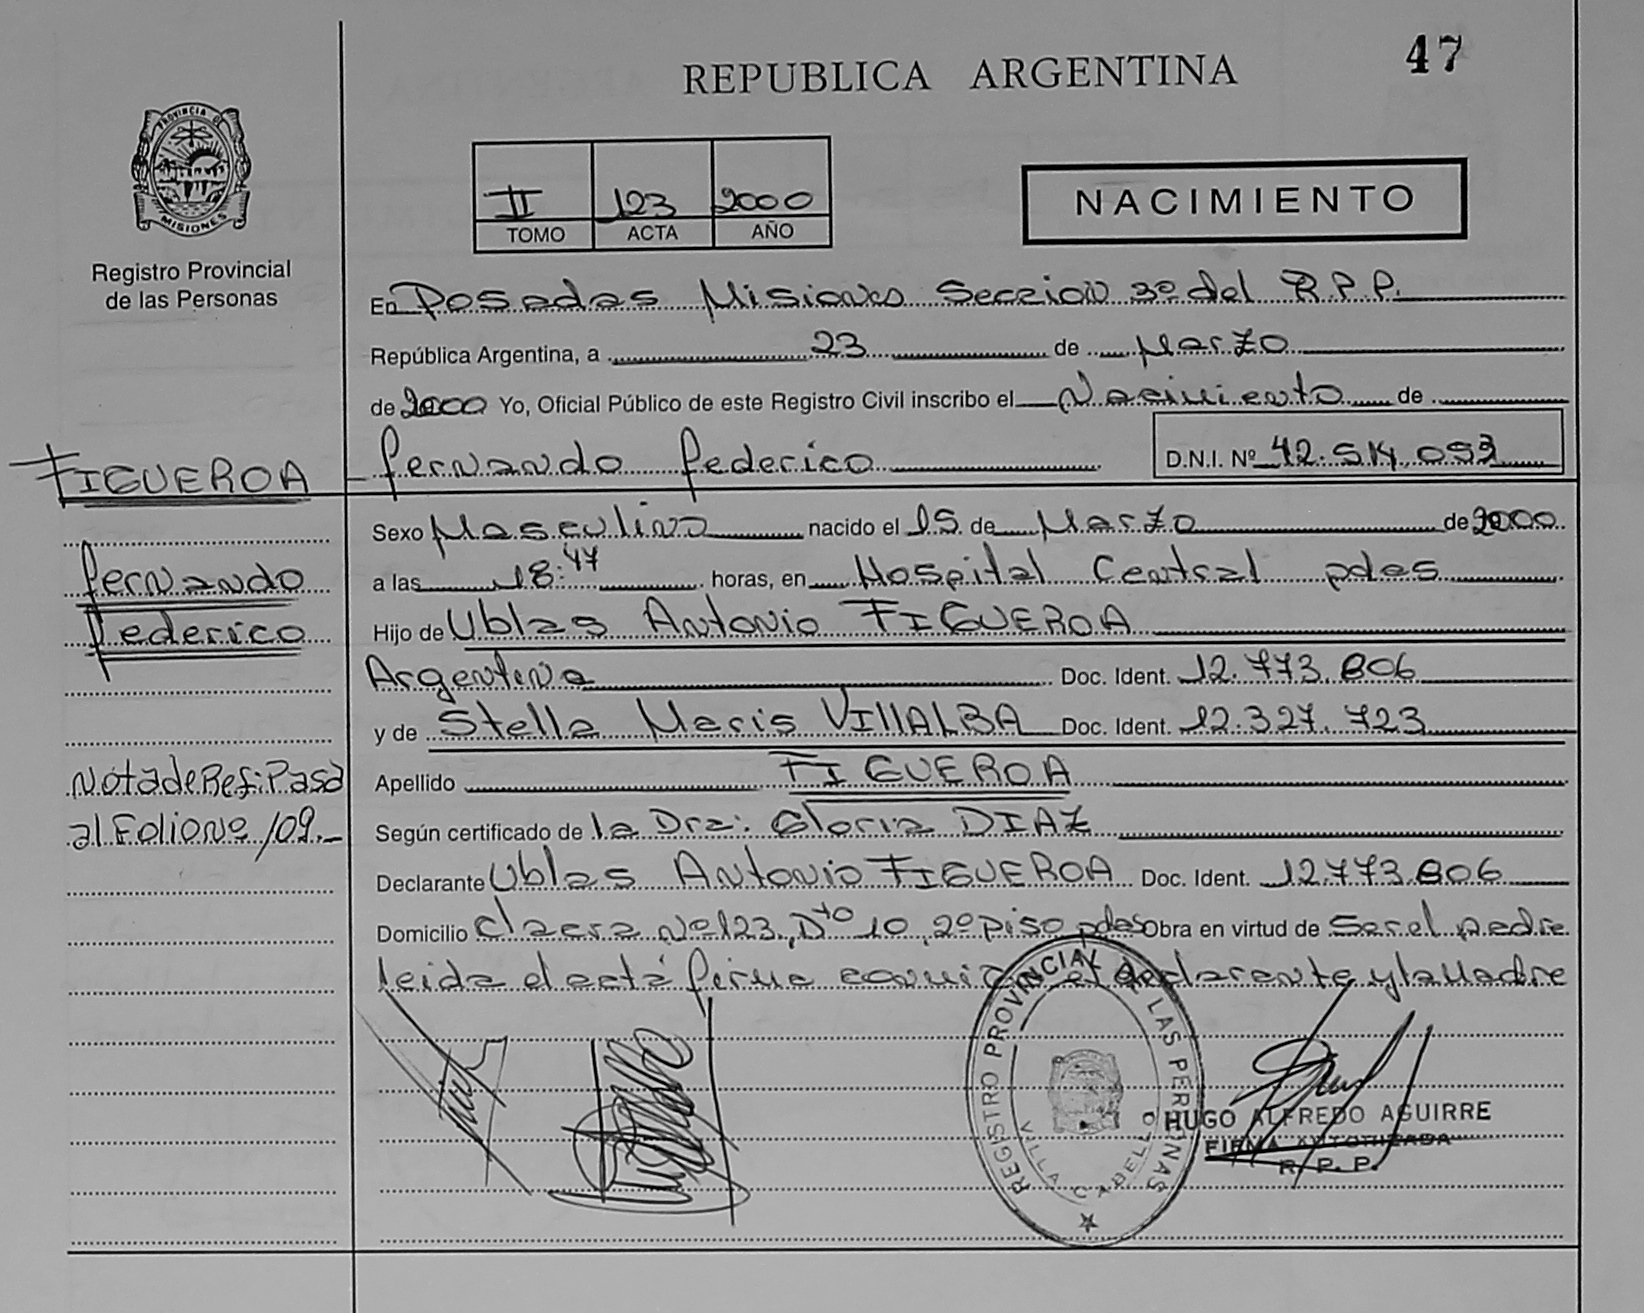 REPUBLICA ARGENTINA
47
PROVINCIA DE
MISIONES
Registro Provincial
de las Personas
II 123 2000
TOMO ACTA AÑO
NACIMIENTO
En Posadas Misiones Seccion 3º del R.P.P.
República Argentina, a 23 de Marzo
de 2000 Yo, Oficial Público de este Registro Civil inscribo el Nacimiento de
fernando federico D.N.I. Nº 42.514.053
FIGUEROA
fernando
federico
Nota de Ref: Pasa
al Folio Nº 109.-
Sexo Masculino nacido el 15 de Marzo de 2000
a las 18:47 horas, en Hospital Central pdas
Hijo de Ublas Antonio FIGUEROA
Argentina Doc. Ident. 12.773.806
y de Stella Maris VILLALBA Doc. Ident. 12.327.723
Apellido FIGUEROA
Según certificado de la Dra: Gloria DIAZ
Declarante Ublas Antonio FIGUEROA Doc. Ident. 12.773.806
Domicilio Nº 123, Dto 10, 2º piso pdas Obra en virtud de Ser el padre
leida el acta firma conmigo el declarante y la Madre
REGISTRO PROVINCIAL DE LAS PERSONAS
VILLA CABELLO
HUGO ALFREDO AGUIRRE
FIRMA AUTORIZADA
R. P. P.